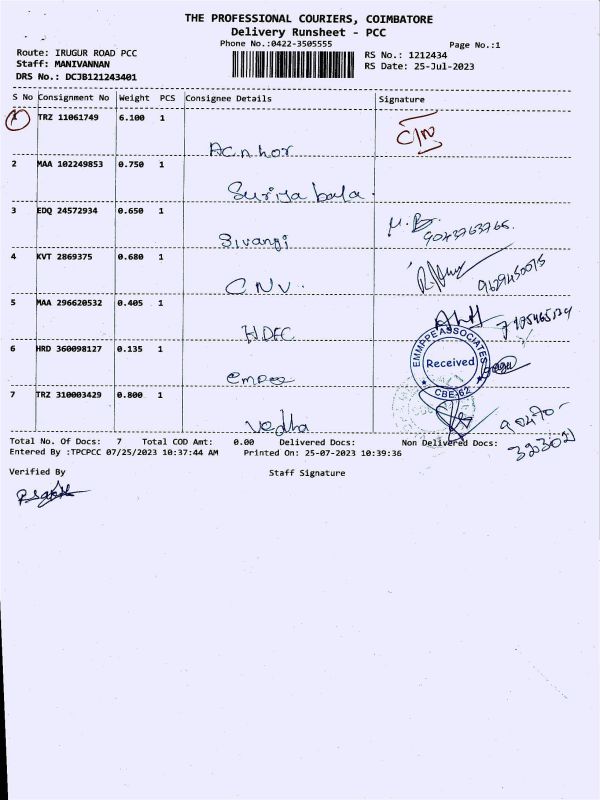 THE PROFESSIONAL COURIERS, COIMBATORE
Delivery Runsheet - PCC
Phone No.:0422-3505555
Page No.:1
Route: IRUGUR ROAD PCC
RS No.: 1212434
Staff: MANIVANNAN
RS Date: 25-Jul-2023
DRS No.: DCJB121243401
S No Consignment No Weight PCS Consignee Details Signature
1 TRZ 11061749 6.100 1
Acnhor
2 MAA 102249853 0.750 1
Suriya bala.
3 EDQ 24572934 0.650 1
Sivangi
4 KVT 2869375 0.680 1
CNV.
5 MAA 296620532 0.405 1
HDFC
6 HRD 360098127 0.135 1
EMMPPE ASSOCIATES
Received
CBE-62
empee
7 TRZ 310003429 0.800 1
Vedha
90470-
323021
Total No. Of Docs: 7 Total COD Amt: 0.00 Delivered Docs: Non Delivered Docs:
Entered By :TPCPCC 07/25/2023 10:37:44 AM Printed On: 25-07-2023 10:39:36
Verified By Staff Signature